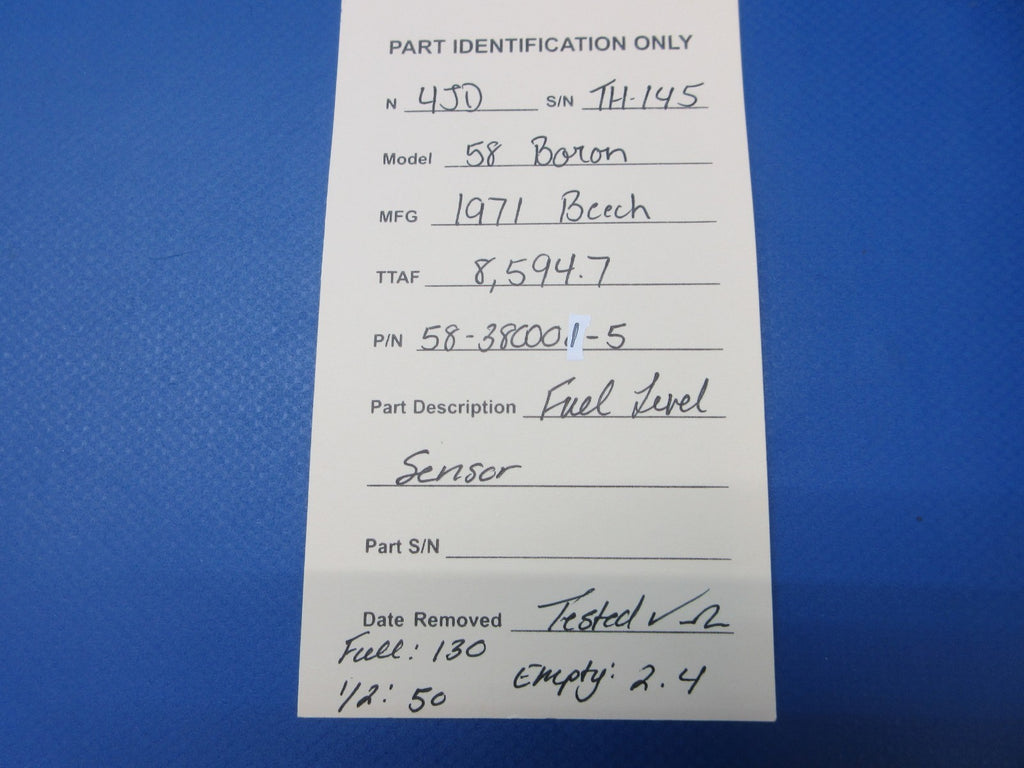 PART IDENTIFICATION ONLY
N 4JD S/N TH-145
Model 58 Boron
MFG 1971 Beech
TTAF 8,594.7
P/N 58-380001-5
Part Description Fuel Level
Sensor
Part S/N
Date Removed Tested ✓ Ω
Full: 130
1/2: 50 Empty: 2.4